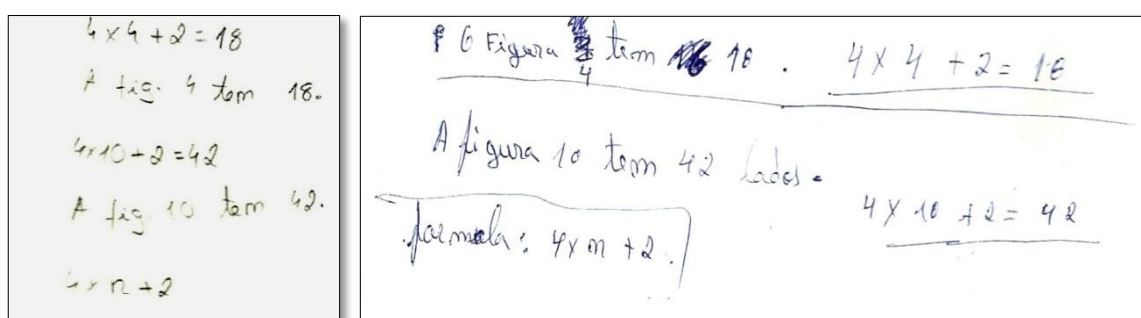 4 x 4 + 2 = 18
A fig. 4 tem 18.
4x10 + 2 = 42
A fig. 10 tem 42.
4 x n + 2
6 Figura 4 tem 18 .
4 x 4 + 2 = 18
A figura 10 tem 42 lados.
4 x 10 + 2 = 42
formula: 4x n + 2.